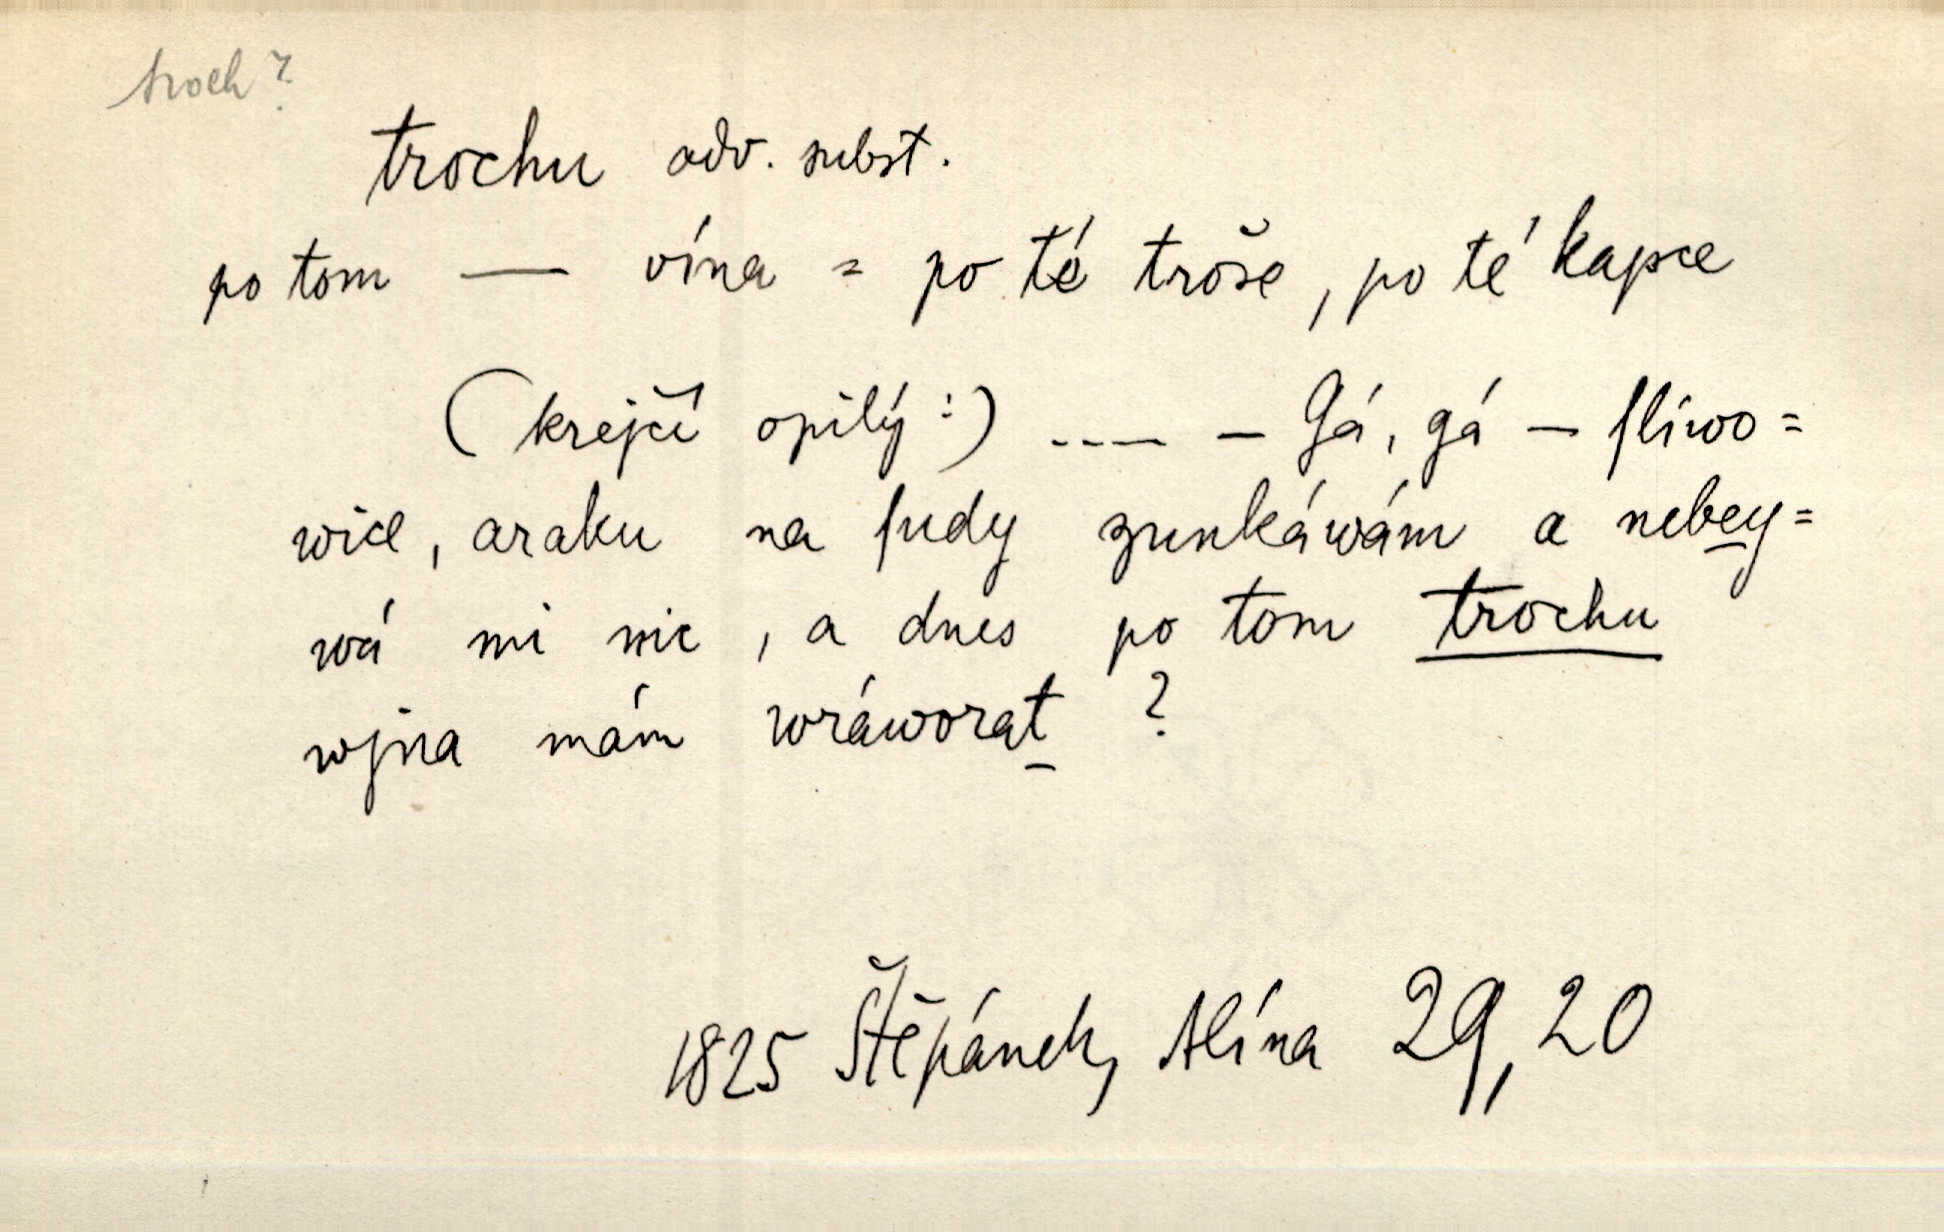 troch?
trochu adv. subst.
po tom — vína = po té troše, po té kapce
(krejčí opilý:) ---- — Gá, gá — sliwo=
wice, araku na sudy zunkáwám a nebey=
wá mi nic, a dnes po tom trochu
wjna mám wráworat?
1825 Štěpánek, Alína 29,20